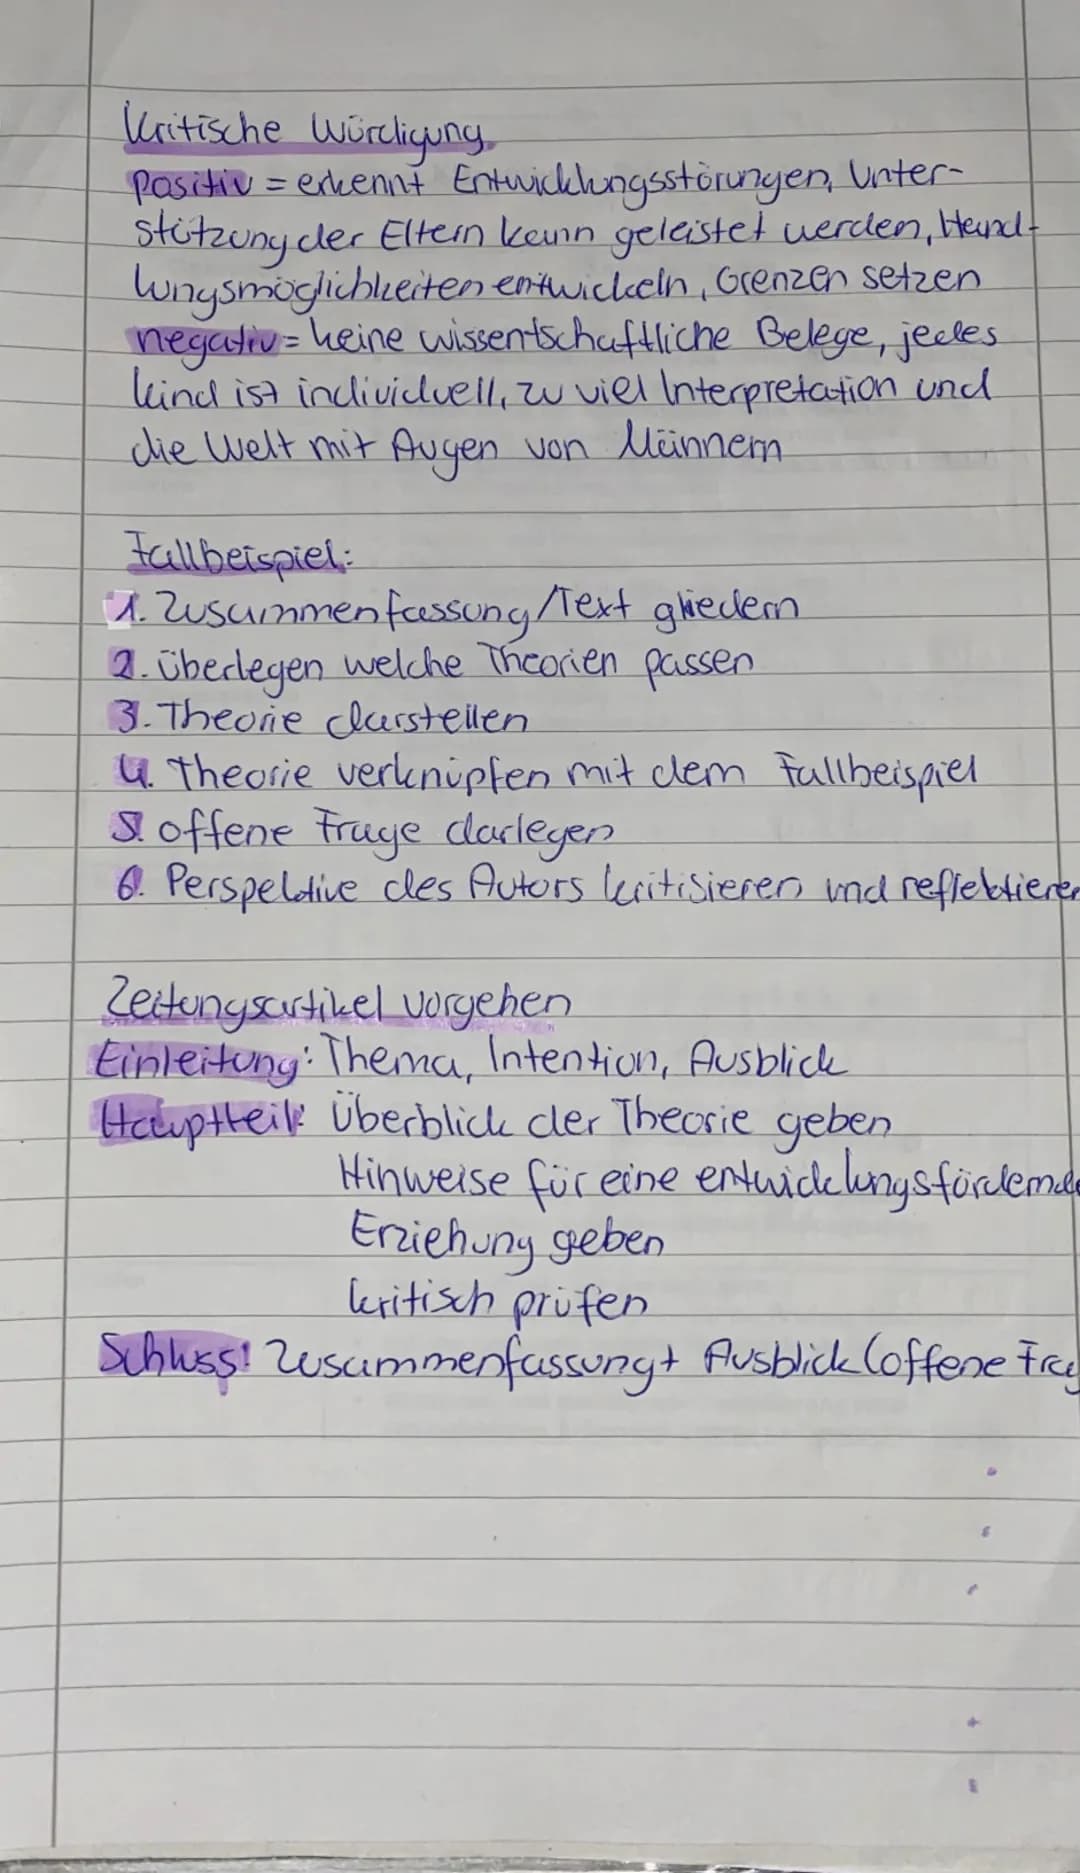 Kritische Würdigung
positiv = erkennt Entwicklungsstörungen, Unter-
stützung der Eltern kann geleistet werden, Hand-
lungsmöglichkeiten entwickeln, Grenzen setzen
negativ = keine wissentschaftliche Belege, jedes
kind ist individuell, zu viel Interpretation und
die Welt mit Augen von Männern
Fallbeispiel:
1. Zusammenfassung/Text gliedern
2. überlegen welche Theorien passen
3. Theorie darstellen
4. Theorie verknüpfen mit dem Fallbeispiel
5. offene Frage darlegen
6. Perspektive des Autors kritisieren und reflektieren
Zeitungsartikel vorgehen
Einleitung: Thema, Intention, Ausblick
Hauptteil: Überblick der Theorie geben
Hinweise für eine entwicklungsfördernde
Erziehung geben
kritisch prüfen
Schluss: Zusammenfassung + Ausblick (offene Frag